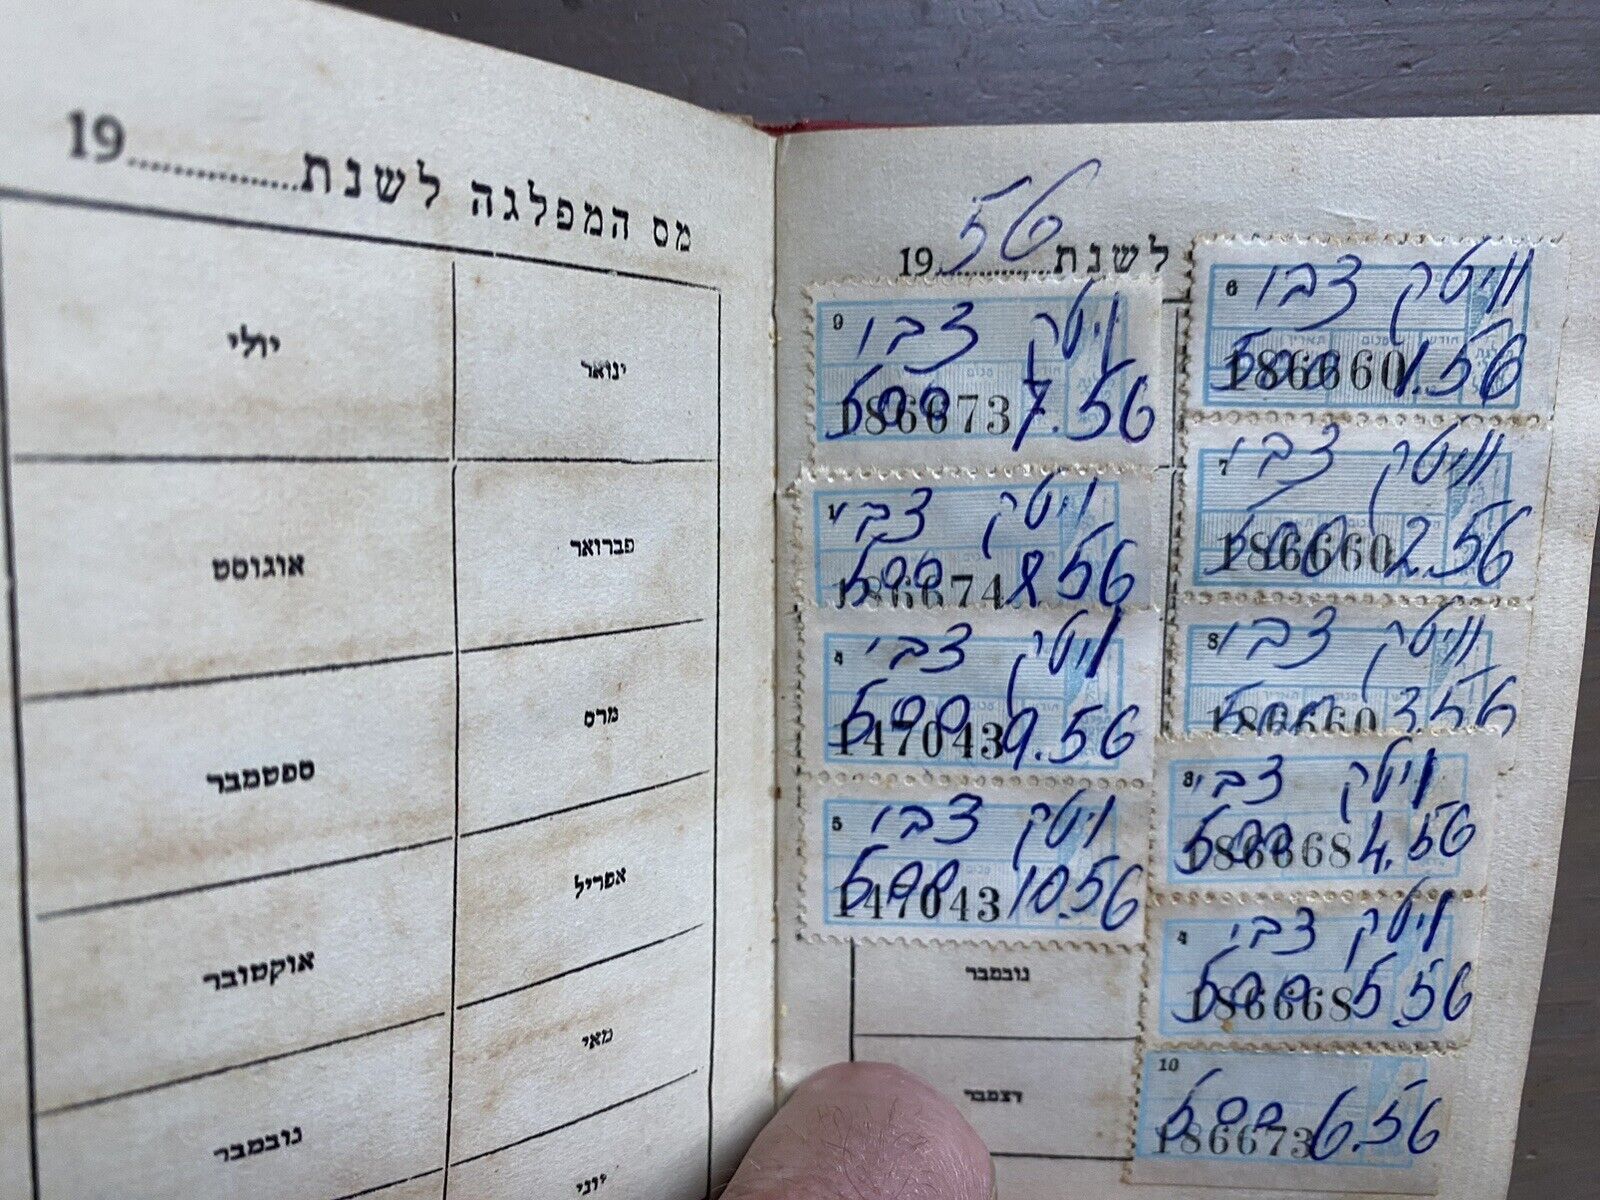 מס המפלגה לשנת..................19
ינואר
יולי
פברואר
אוגוסט
מרס
ספטמבר
אפריל
אוקטובר
מאי
נובמבר
יוני
לשנת 56 19
6
וויטק צבי
186660 500 1.56
7
וויטק צבי
186660 500 2.56
8
וויטק צבי
186660 500 3.56
3
ויטק צבי
186668 500 4.56
4
ויטק צבי
186668 500 5.56
10
186673 500 6.56
9
ויטק צבי
186673 500 7.56
1
ויטק צבי
186674 500 8.56
4
ויטק צבי
147043 500 9.56
5
ויטק צבי
147043 500 10.56
נובמבר
דצמבר